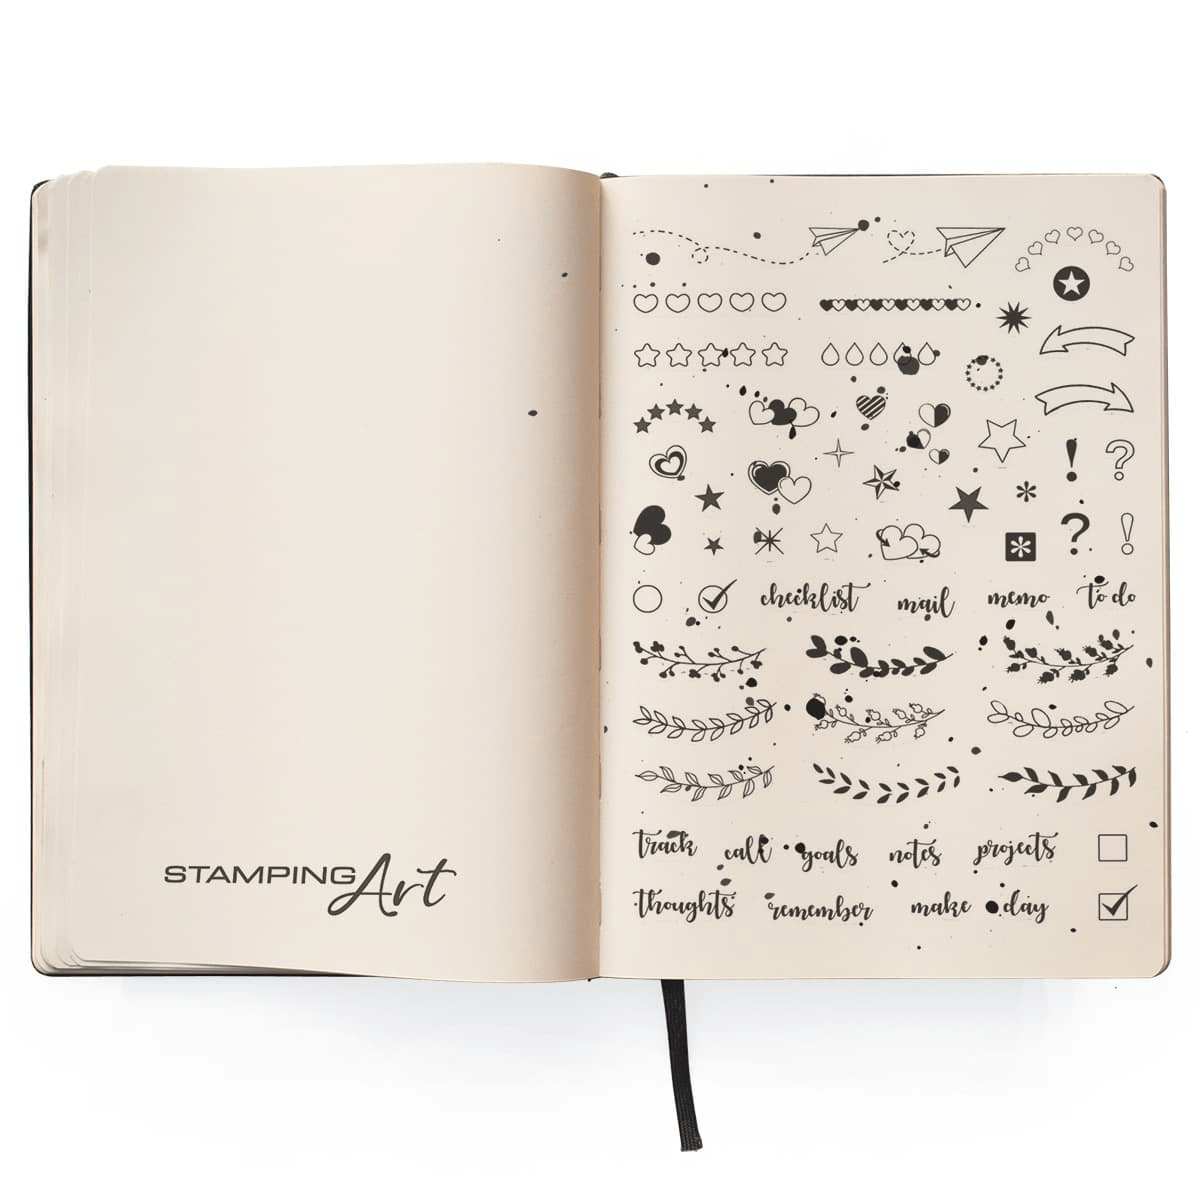 STAMPING Art
? 
! ?
* 
* ? !
checklist mail memo to do
track call goals notes projects
thoughts remember make day